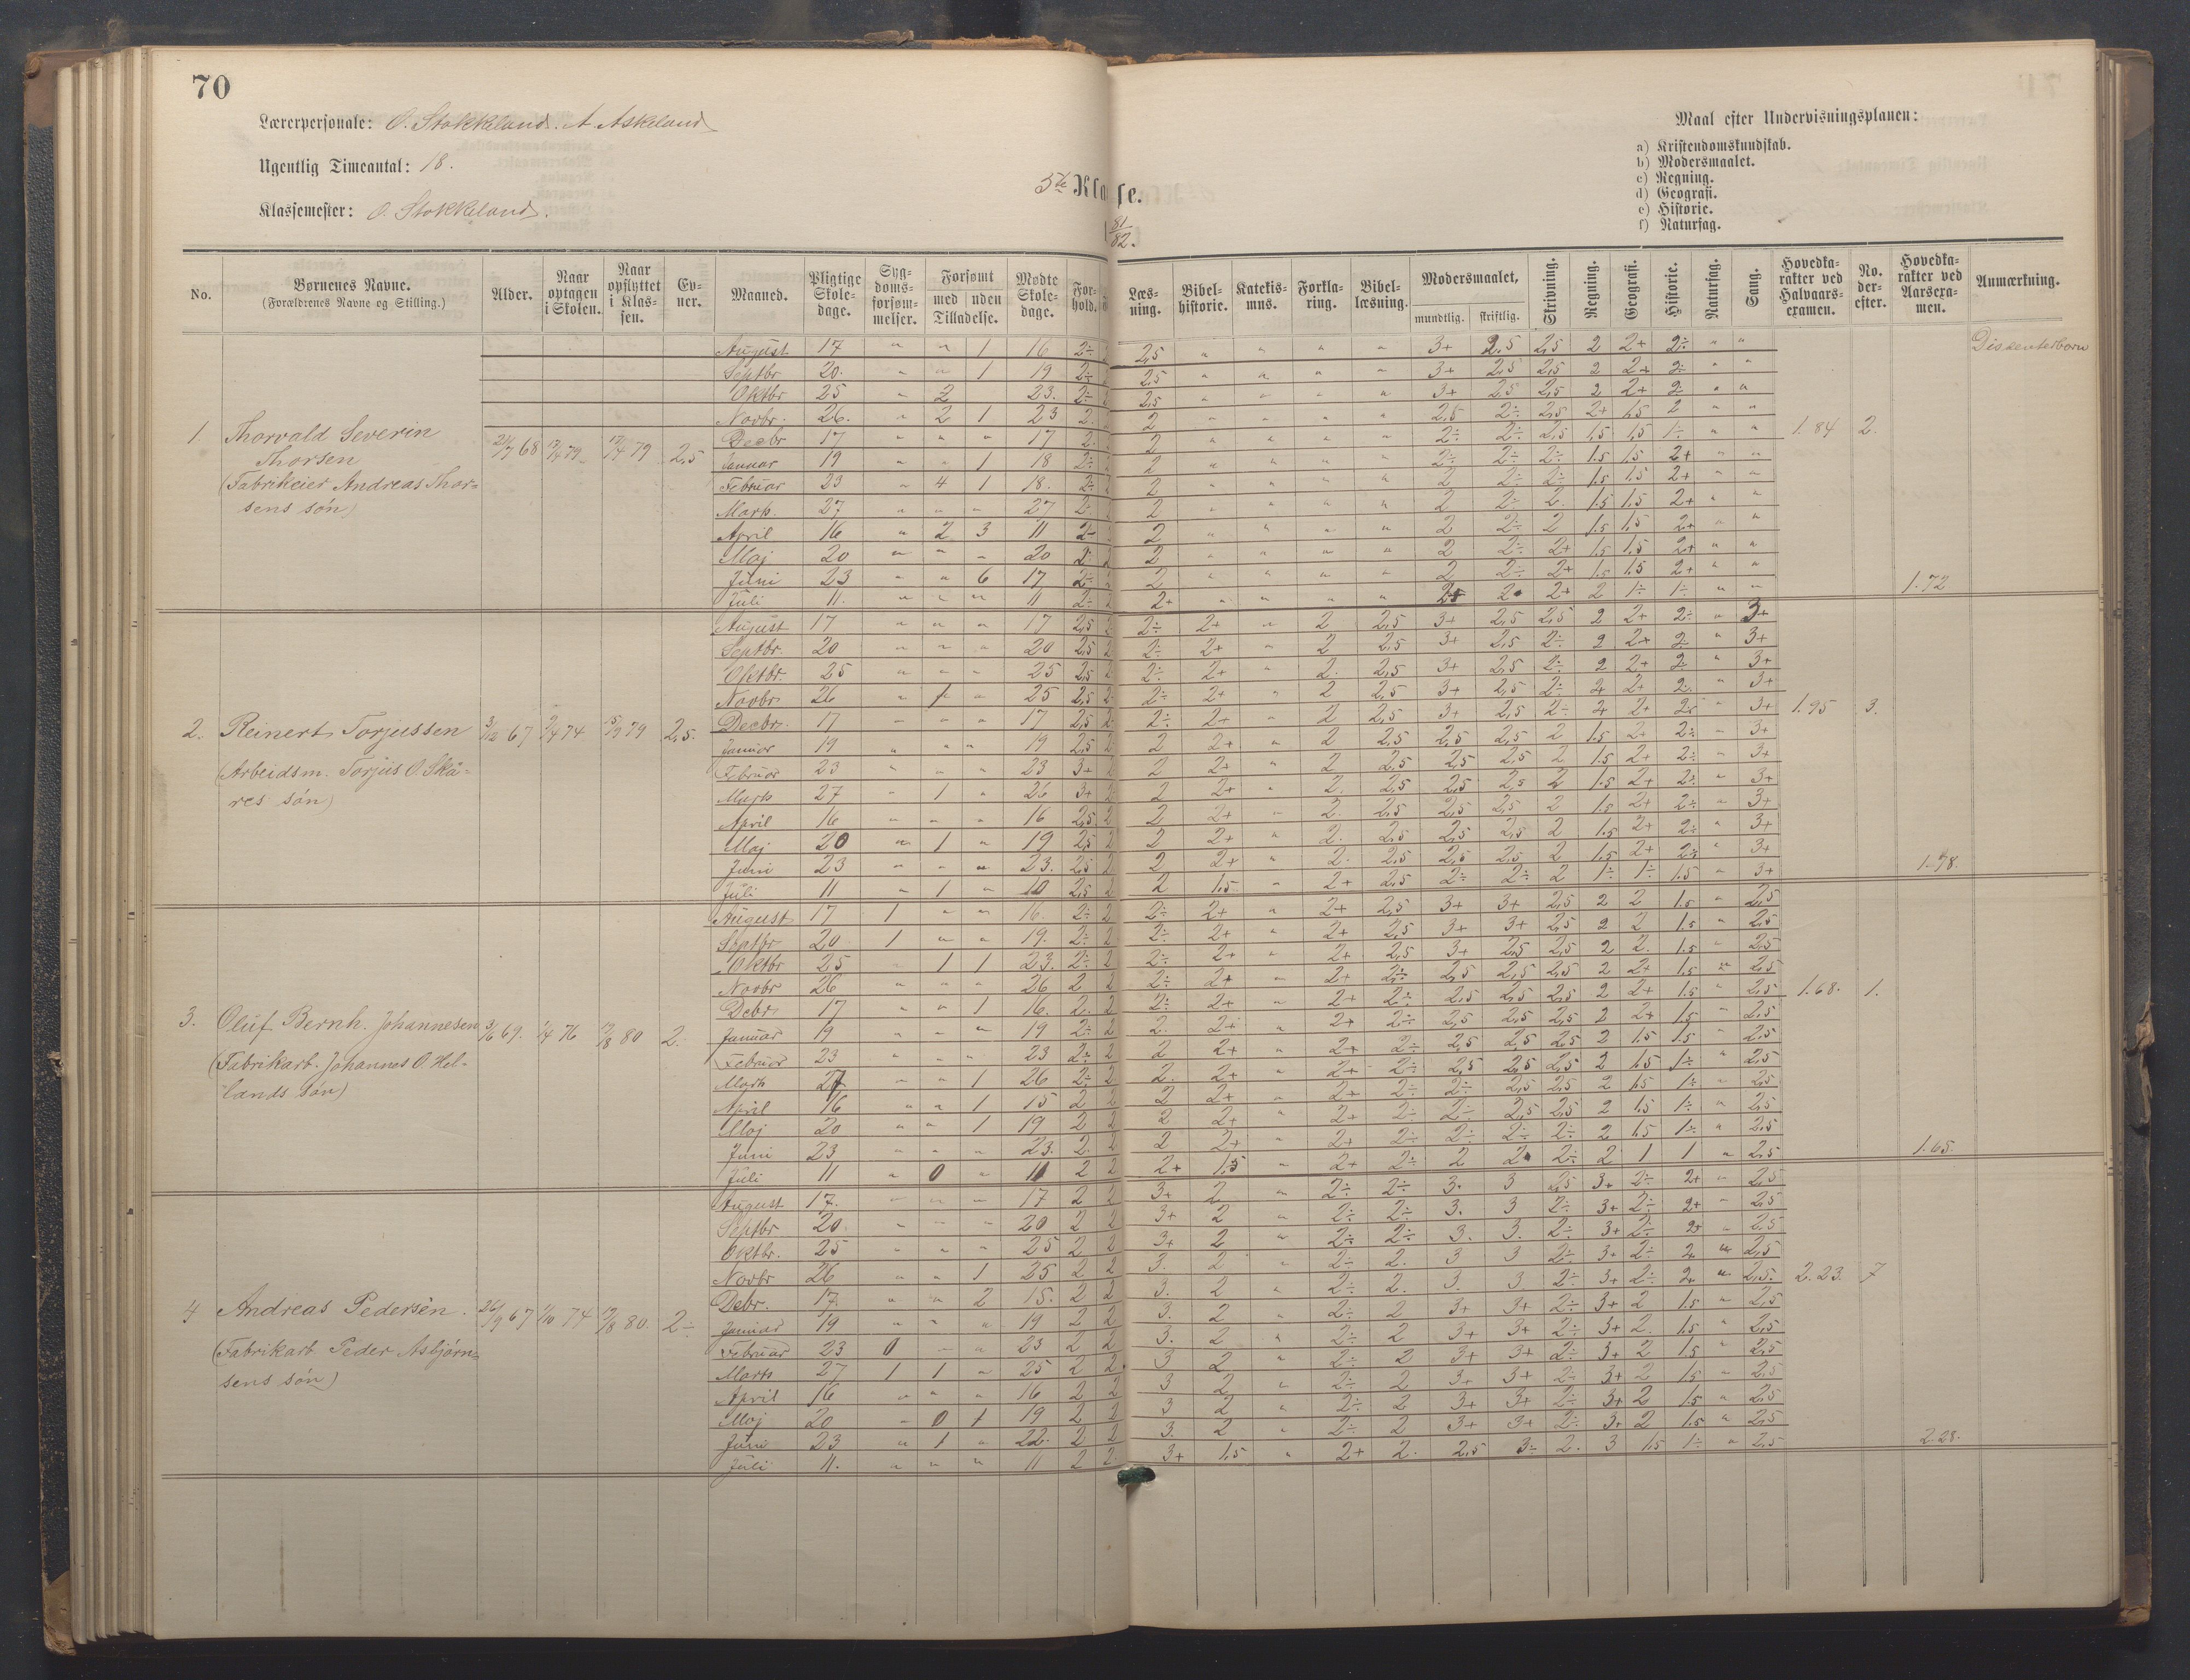 70
Lærerpersonale: O. Stokkeland. A. Askeland
Ugentlig Timeantal: 18.
Klassemester: O. Stokkeland.
5te Klasse.
81/82.
Maal efter Undervisningsplanen:
a) Kristendomskundskab.
b) Modersmaalet.
c) Regning.
d) Geografi.
e) Historie.
f) Naturfag.
No. Børnenes Navne. (Forældrenes Navne og Stilling.) Alder. Naar optagen i Skolen. Naar opflyttet i Klassen. Evner. Maaned. Pligtige Skoledage. Sygdomsforsømmelser. Forsømt med uden Tilladelse. Mødte Skoledage. Forhold.
Læsning. Bibelhistorie. Katekismus. Forklaring. Bibellæsning. Modersmaalet, mundtlig. skriftlig. Skrivning. Regning. Geografi. Historie. Naturfag. Sang. Hovedkarakter ved Halvaarsexamen. No. derefter. Hovedkarakter ved Aarsexamen. Anmærkning.
August 17 " " 1 16 2÷ 2,5 " " " " 3+ 2,5 2,5 2 2+ 2÷ " " Dissenterbarn
Septbr 20. " " 1 19 2÷ 2,5 " " " " 3+ 2,5 2,5 2 2+ 2÷ " "
Oktbr 25 " 2 23. 2÷ 2,5 " " " " 3+ 2,5 2,5 2 2+ 2÷ " "
Novbr. 26. " 2 1 23 2. 2 " " " " 2,5 2÷ 2,5 2+ 1,5 2 " "
1. Thorvald Severin Thorsen
(Fabrikeier Andreas Thorsens søn)
68 79 79 2,5
Decbr 17 " " " 17 2. 2 " " " " 2÷ 2÷ 2,5 1,5 1,5 1÷ " " 1.84 2.
Januar 19 " " 1 18 2÷ 2 " " " " 2÷ 2÷ 2÷ 1.5 1.5 2+ " "
Februar 23 " 4 1 18. 2÷ 2 " " " " 2 2÷ 2÷ 1.5 1.5 2+ " "
Marts. 27 " " " 27 2÷ 2 " " " " 2 2÷ 2. 1.5 1.5 2+ " "
April 16 " 2 3 11 2÷ 2 " " " " 2 2÷ 2 1.5 1.5 2+ " "
Maj 20 " " " 20 2÷ 2 " " " " 2 2÷ 2+ 1.5 1.5 2+ " "
Juni 23 " " 6 17 2÷ 2 " " " " 2 2÷ 2+ 1.5 1.5 2+ " "
Juli 11. " " " 11 2÷ 2+ " " " " 2 2+ 2 1÷ 1÷ " " 1.72
August 17 " " " 17 2,5 2÷ 2+ " 2 2,5 3+ 2,5 2,5 2 2+ 2÷ " 3+
Septbr. 20 " " " 20 2,5 2÷ 2+ " 2 2,5 3+ 2,5 2÷ 2 2+ 2÷ " 3+
Oktbr. 25 " " " 25 2,5 2÷ 2+ " 2. 2,5 3+ 2,5 2÷ 2 2+ 2÷ " 3+
Novbr 26 " 1 " 25 2,5 2÷ 2+ " 2 2,5 3+ 2,5 2÷ 2 2+ 2÷ " 3+
2. Reinert Torjussen
(Arbeidsm. Torjus O. Skåres søn)
3/12 67 74 79 2,5.
Decbr. 17 " " " 17 2,5 2÷ 2+ " 2 2,5 3+ 2,5 2÷ 2 2+ 2÷ " 3+ 1.95 3.
Januar 19 " " " 19 2,5 2 2+ " 2 2,5 2,5 2,5 2 1.5 2+ 2÷ " 3+
Februar 23 " " " 23 3+ 2 2+ " 2 2,5 2,5 2,5 2 1.5 2+ 2÷ " 3+
Marts 27 " 1 " 26 3+ 2 2+ " 2. 2,5 2,5 2,5 2 1.5 2+ 2÷ " 3+
April 16 " " " 16 2,5 2 2+ " 2. 2,5 2,5 2,5 2 1.5 2+ 2÷ " 3+
Maj 20 " 1 " 19 2,5 2 2+ " 2. 2,5 2,5 2,5 2 1.5 2+ 2÷ " 3+
Juni 23 " " " 23. 2,5 2 2+ " 2. 2,5 2,5 2,5 2 1,5 2+ 2÷ " 3+
Juli 11 " 1 " 10 2,5 2 1,5 " 2+ 2,5 2÷ 2÷ 2 1÷ 1÷ 1.5 " 3+ 1.78.
August 17 1 " " 16. 2÷ 2 2÷ 2+ " 2+ 2,5 3+ 3+ 2,5 2 2 1.5 " 2,5
Septbr 20 1 " " 19. 2÷ 2 2÷ 2+ " 2+ 2,5 3+ 3+ 2,5 2 2 1.5 " 2,5
Oktbr 25 " 1 1 23. 2÷ 2 2÷ 2+ " 2+ 2,5 3+ 2,5 2,5 2 2. 1.5 " 2,5
Novbr 26 " " " 26 2 2 2÷ 2+ " 2+ 2÷ 2,5 2,5 2,5 2 2+ 1.5 " 2,5
3. Oluf Bernh. Johannesen
(Fabrikarb. Johannes O. Hellands Søn)
69. 76 80 2.
Debr 17 " " 1 16. 2. 2 2÷ 2+ " 2+ 2÷ 2,5 2,5 2,5 2 2+ 1.5 " 2,5 1.68. 1.
Januar 19 " " " 19 2÷ 2 2. 2+ " 2+ 2÷ 2,5 2,5 2,5 2 2+ 1.5 " 2,5
Februar 23 " " " 23 2÷ 2 2 2+ " 2+ 2÷ 2,5 2,5 2,5 2 1.5 1.5 " 2,5
Marts 27 " " 1 26 2÷ 2 2. 2+ " 2+ 2÷ 2,5 2,5 2,5 2 1.5 1÷ " 2,5
April 16 " " 1 15 2 2 2 2+ " 2+ 2÷ 2÷ 2,5 2,5 2 1.5 1÷ " 2,5
Maj 20 " " 1 19 2 2 2 2+ " 2+ 2÷ 2÷ 2,5 2,5 2 1.5 1÷ " 2,5
Juni 23 " " " 23. 2. 2 2 2+ " 2+ 2÷ 2÷ 2÷ 2÷ 2 1.5 1÷ " 2,5
Juli 11 " 0 " 11 2 2 2+ 1,5 " 2+ 2÷ 2 2 2÷ 2 1 1 " 2,5 1.65.
August 17. " " " 17 2 2 3+ 2 " 2÷ 2÷ 3. 3 2,5 3+ 2÷ 2+ " 2,5
Septbr 20. " " " 20 2 2 3+ 2 " 2÷ 2÷ 3. 3 2÷ 3+ 2÷ 2+ " 2,5
Oktbr. 25 " " " 25 2 2 3+ 2 " 2÷ 2÷ 3. 3. 2÷ 3+ 2÷ 2+ " 2,5
Novbr 26 " " 1 25 2 2 3. 2 " 2÷ 2. 3 3 2÷ 3+ 2÷ 2 " 2,5
4 Andreas Pedersen.
(Fabrikarb. Peder Asbjørnsens søn)
26/9 67 1/10 74 80. 2÷
Debr. 17. " " 2 15. 2 2 3. 2 " 2÷ 2. 3. 3 2÷ 3+ 2÷ 2 " 2,5. 2.23. 7
Januar 19 " " " 19 2 2 3. 2 " 2÷ 2 3+ 3+ 2÷ 3+ 2 1.5 " 2,5
Februar 23 0 " " 23 2 2 3. 2 " 2÷ 2 3+ 3+ 2÷ 3+ 2. 1.5 " 2,5
Marts 27 1 1 " 25 2 2. 3 2 " 2÷ 2 3+ 3+ 2÷ 3+ 2 1.5 " 2,5
April 16 " " " 16 2 2 3 2 " 2÷ 2 3+ 3+ 2÷ 3+ 2 1.5 " 2,5
Maj 20 " 0 1 19 2 2 3 2 " 2÷ 2 3+ 3+ 2÷ 3+ 2 1.5 " 2,5
Juni 23 " 1 " 22. 2 2 3. 2 " 2÷ 2 3+ 3+ 2÷ 3+ 2 1.5 " 2,5
Juli 11. " " " 11 2 2 3+ 1,5 " 2+ 2. 2,5 3÷ 2. 3 1.5 1÷ " 2,5 2.28.